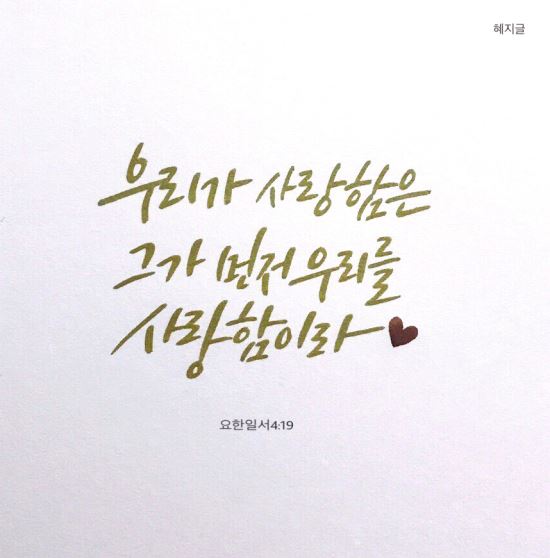 혜지글
우리가 사랑함은
그가 먼저 우리를
사랑함이라
요한일서4:19